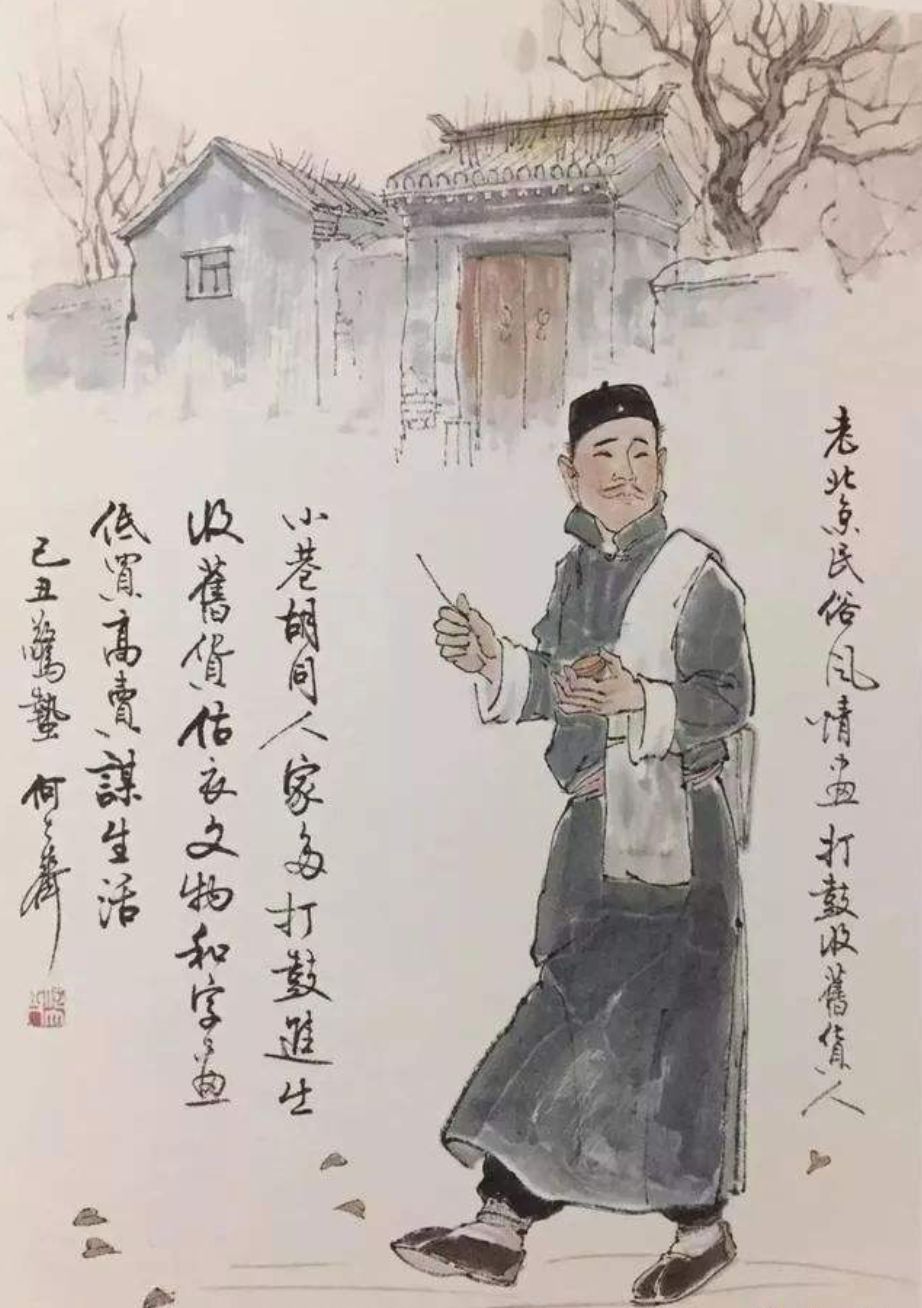 老北京民俗风情画 打鼓收舊貨人
小巷胡同人家多打鼓進出
收舊貨估衣文物和字画
低買高賣謀生活
己丑驚蟄 何大齊